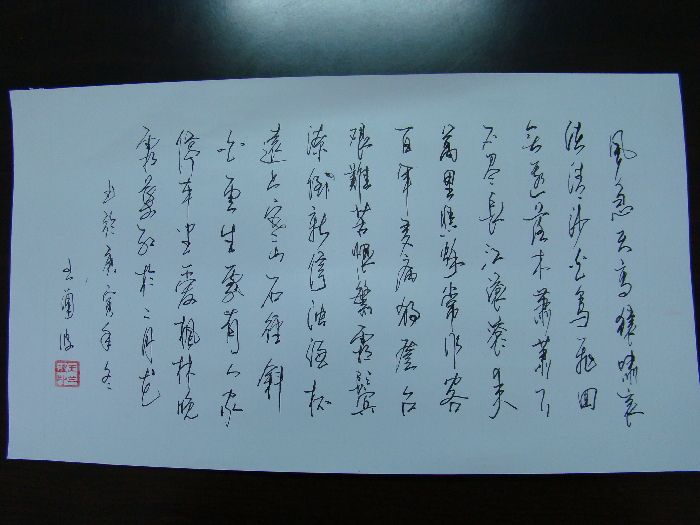 風急天高猿嘯哀
渚清沙白鳥飛回
無邊落木蕭蕭下
不尽長江滾滾来
萬里悲秋常作客
百年多病獨登台
艱難苦恨繁霜鬢
潦倒新停濁酒杯
遠上寒山石徑斜
白雲生處有人家
停車坐愛楓林晚
霜葉红於二月花
书於庚寅年冬
王蘭波